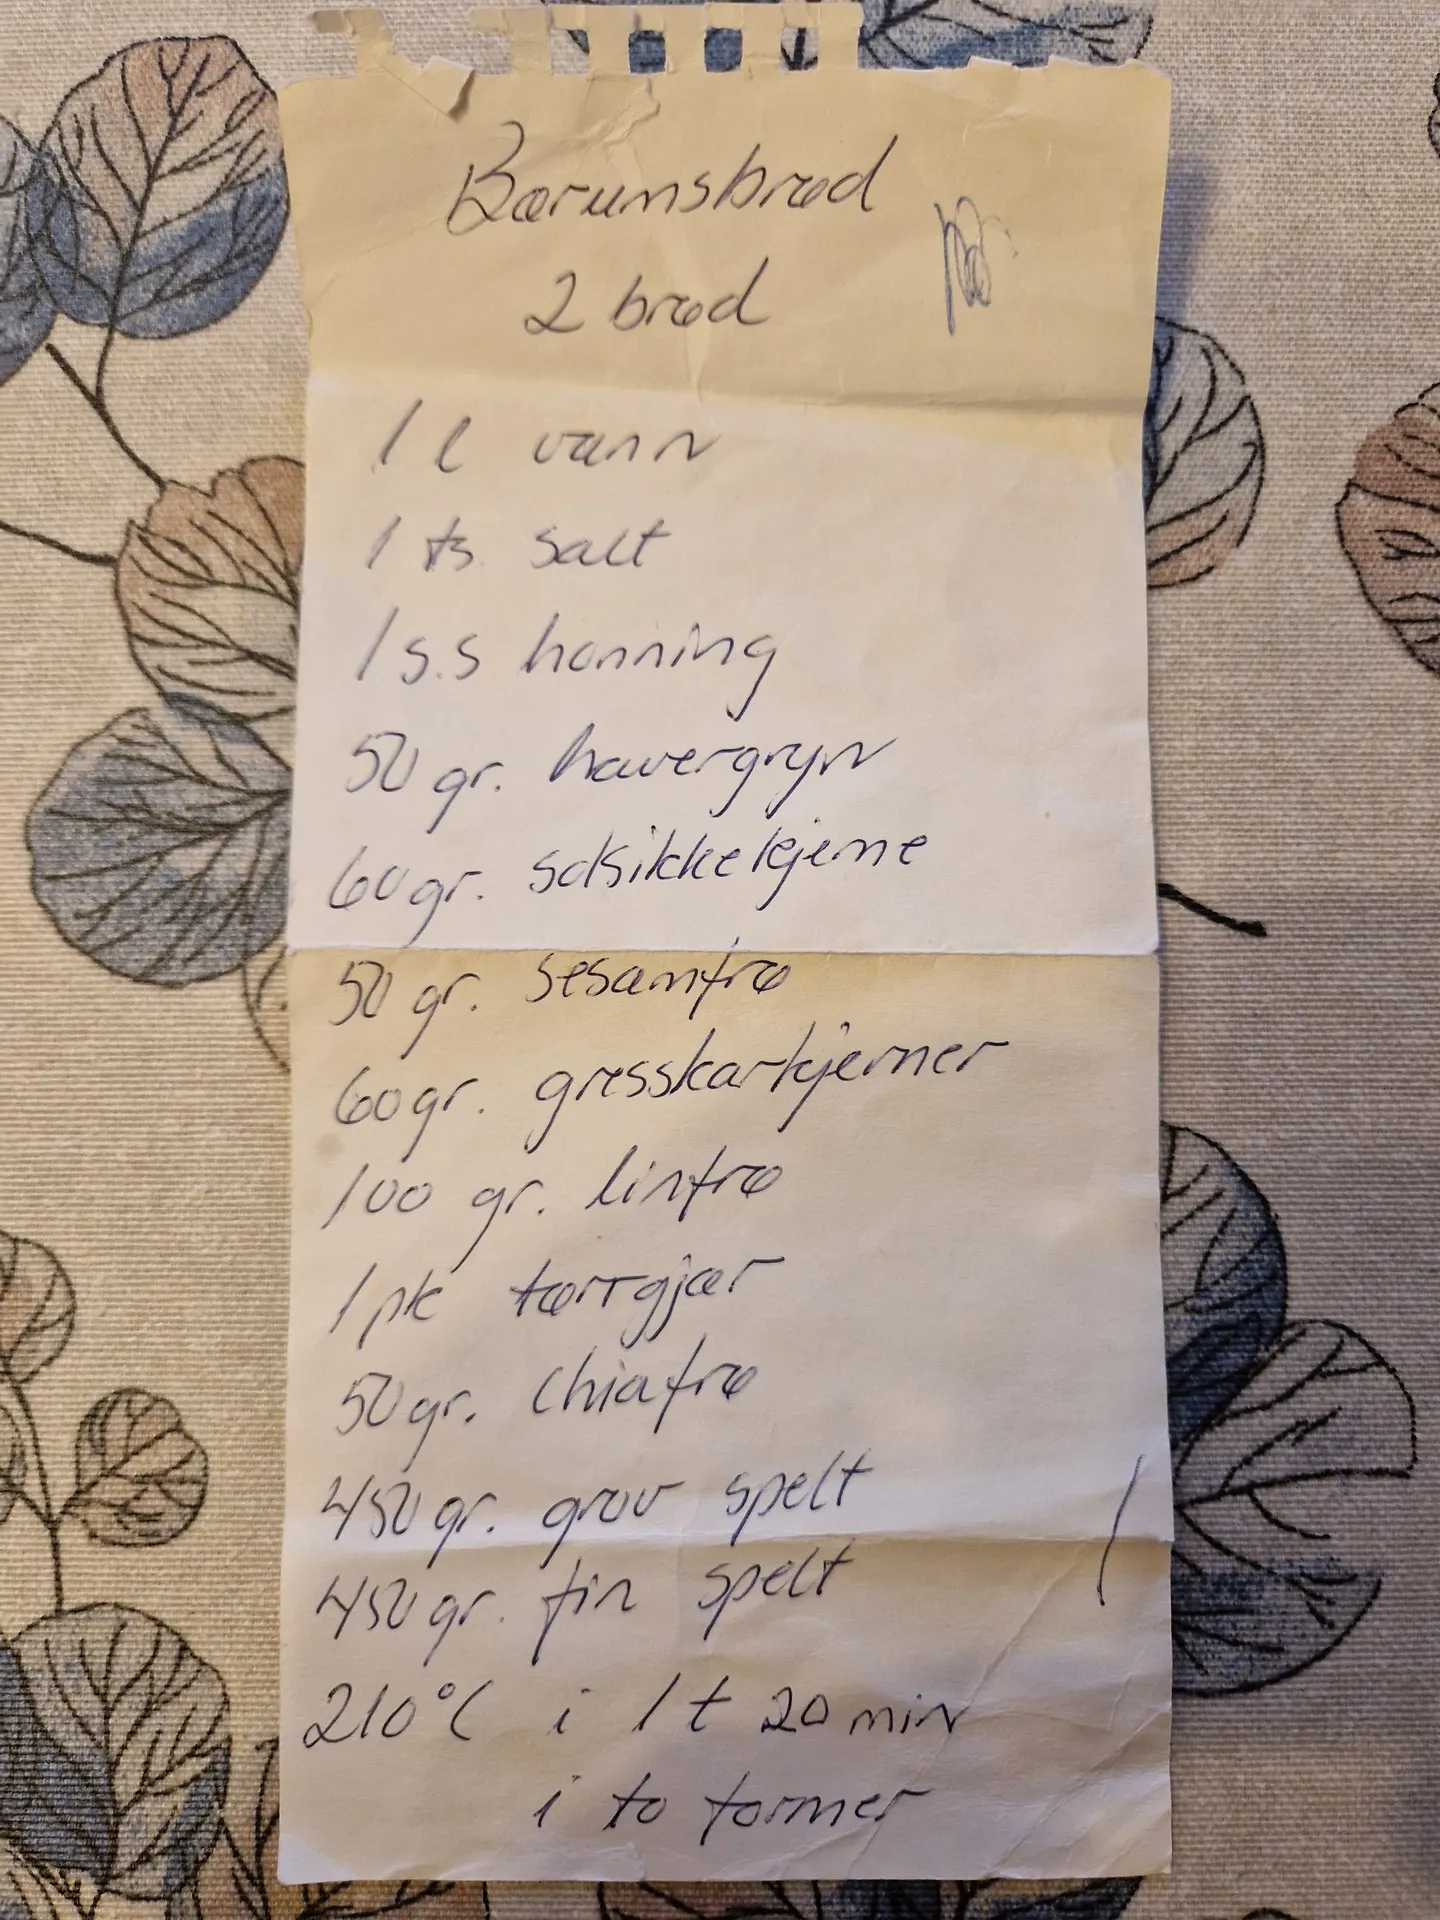 Bærumsbrød
2 brød
1 l vann
1 ts. salt
1 s.s honning
50 gr. havergryn
60 gr. solsikkekjerne
50 gr. sesamfrø
60 gr. gresskarkjerner
100 gr. linfrø
1 pk tørrgjær
50 gr. Chiafrø
450 gr. grov spelt
450 gr. fin spelt
210°C i 1 t 20 min
i to former